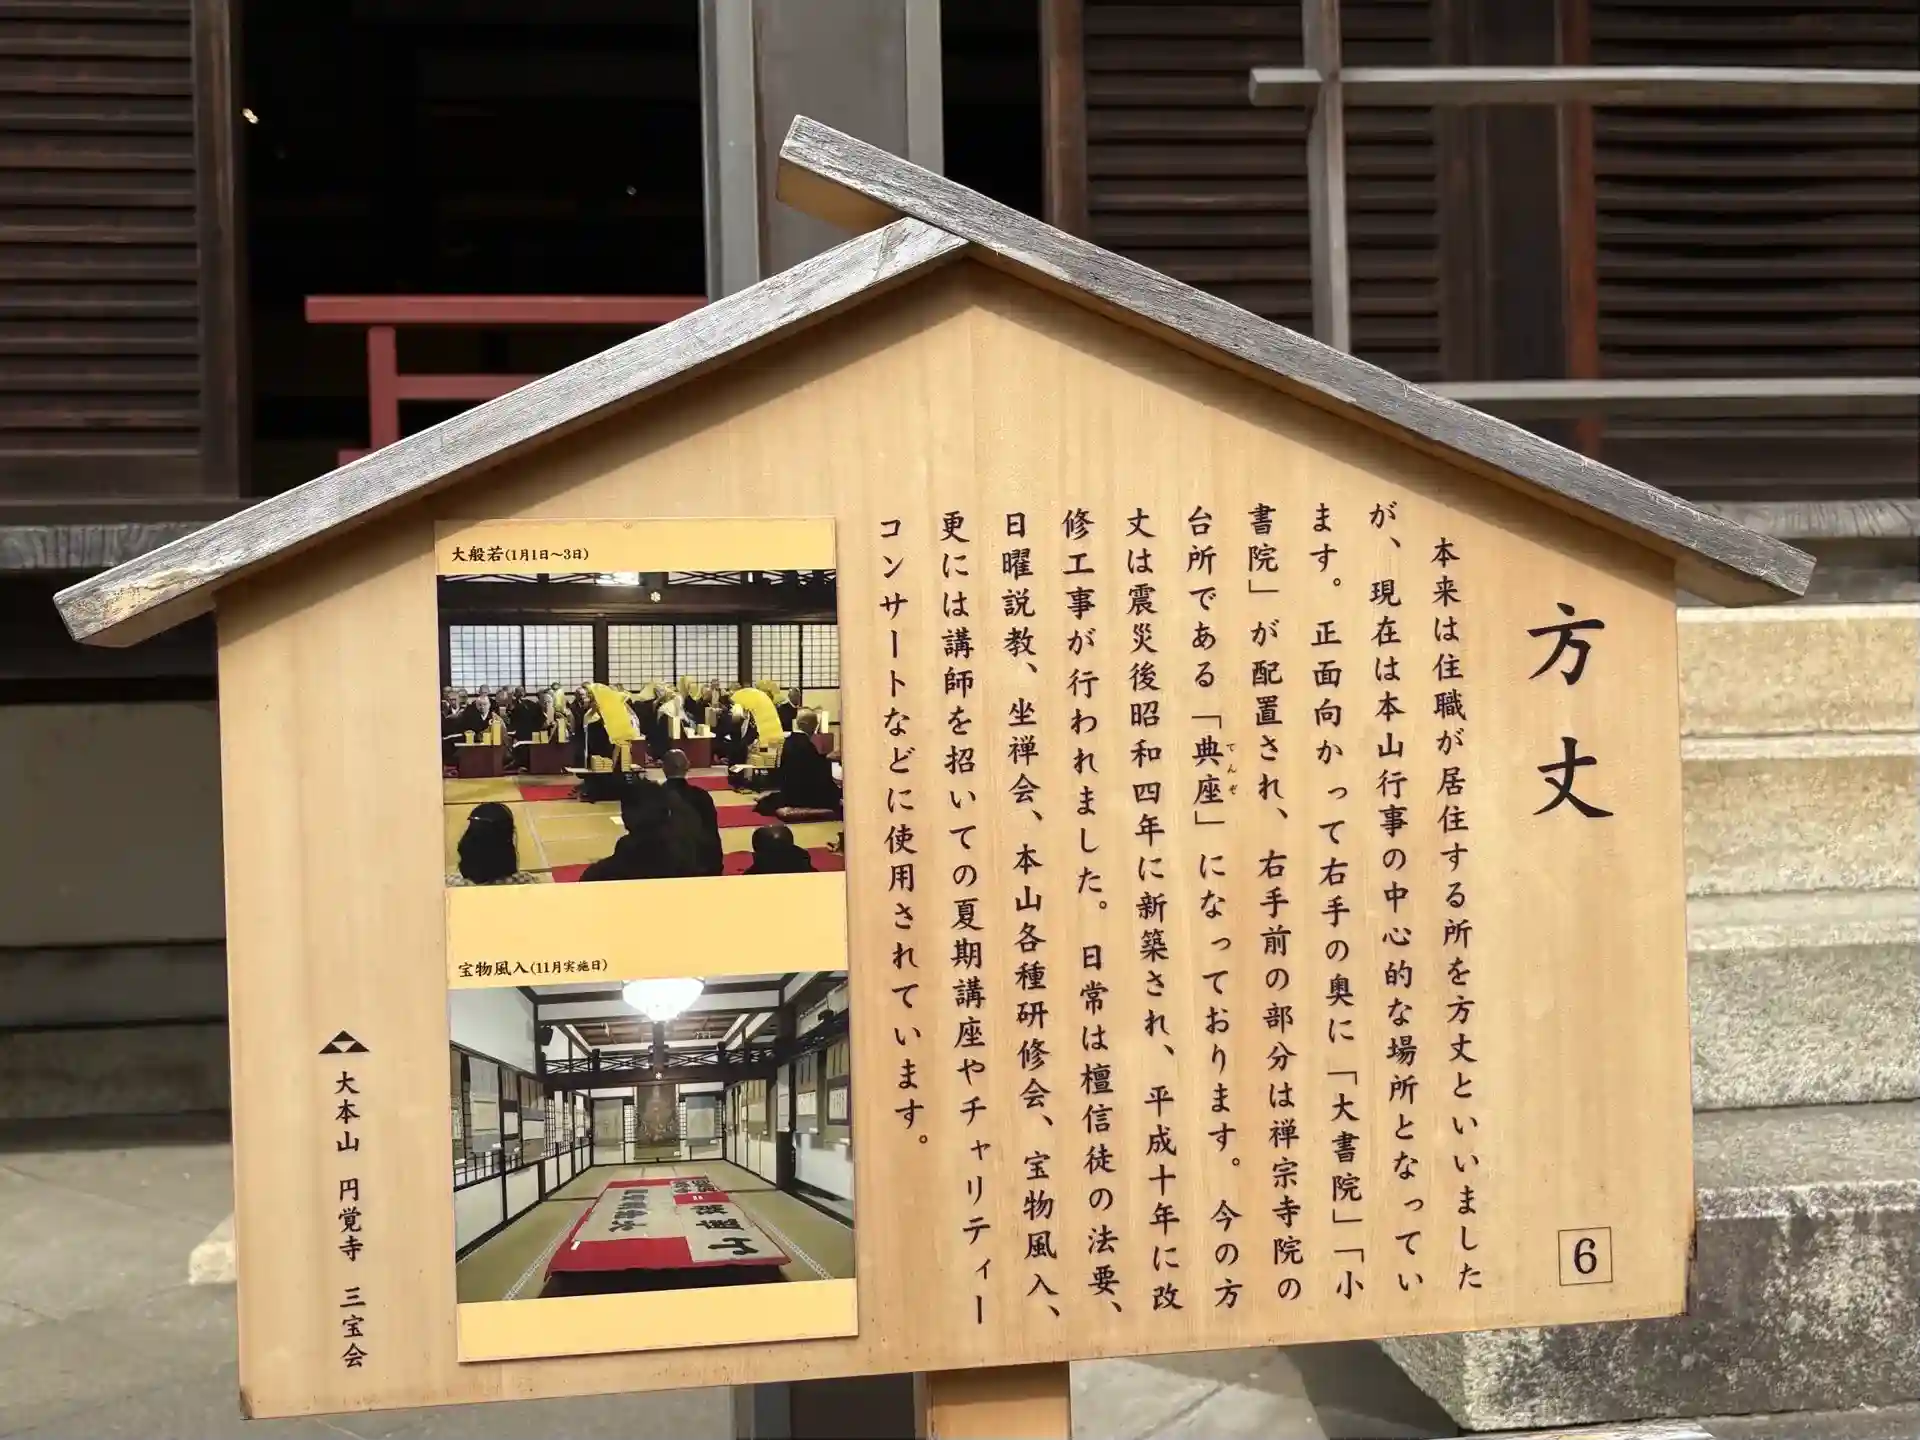 方丈
本来は住職が居住する所を方丈といいました
が、現在は本山行事の中心的な場所となってい
ます。正面向かって右手の奥に「大書院」「小
書院」が配置され、右手前の部分は禅宗寺院の
台所である「典座」になっております。今の方
てんぞ
丈は震災後昭和四年に新築され、平成十年に改
修工事が行われました。日常は檀信徒の法要、
日曜説教、坐禅会、本山各種研修会、宝物風入、
更には講師を招いての夏期講座やチャリティー
コンサートなどに使用されています。
6
大般若(1月1日〜3日)
宝物風入(11月実施日)
大本山 円覚寺 三宝会